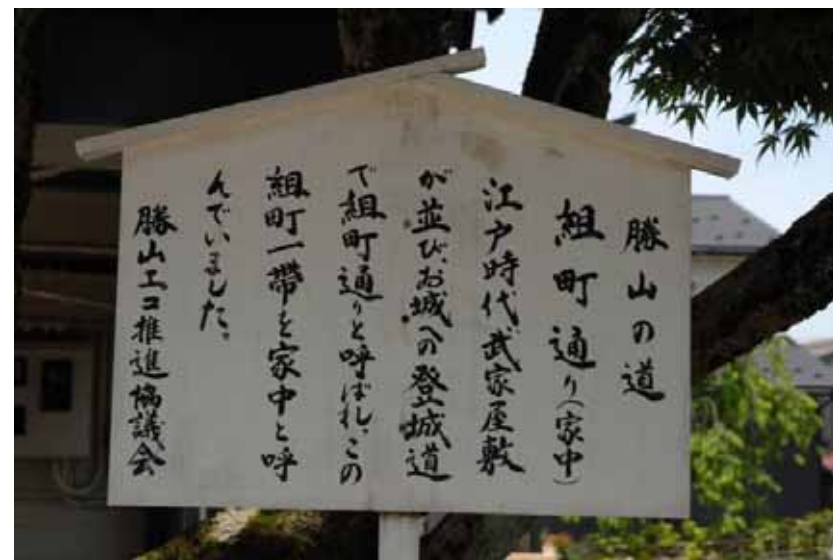 勝山の道
組町通り(家中)
江戸時代武家屋敷
が並び、お城への登城道
で組町通りと呼ばれ、この
組町一帯を家中と呼
んでいました。
勝山エコ推進協議会